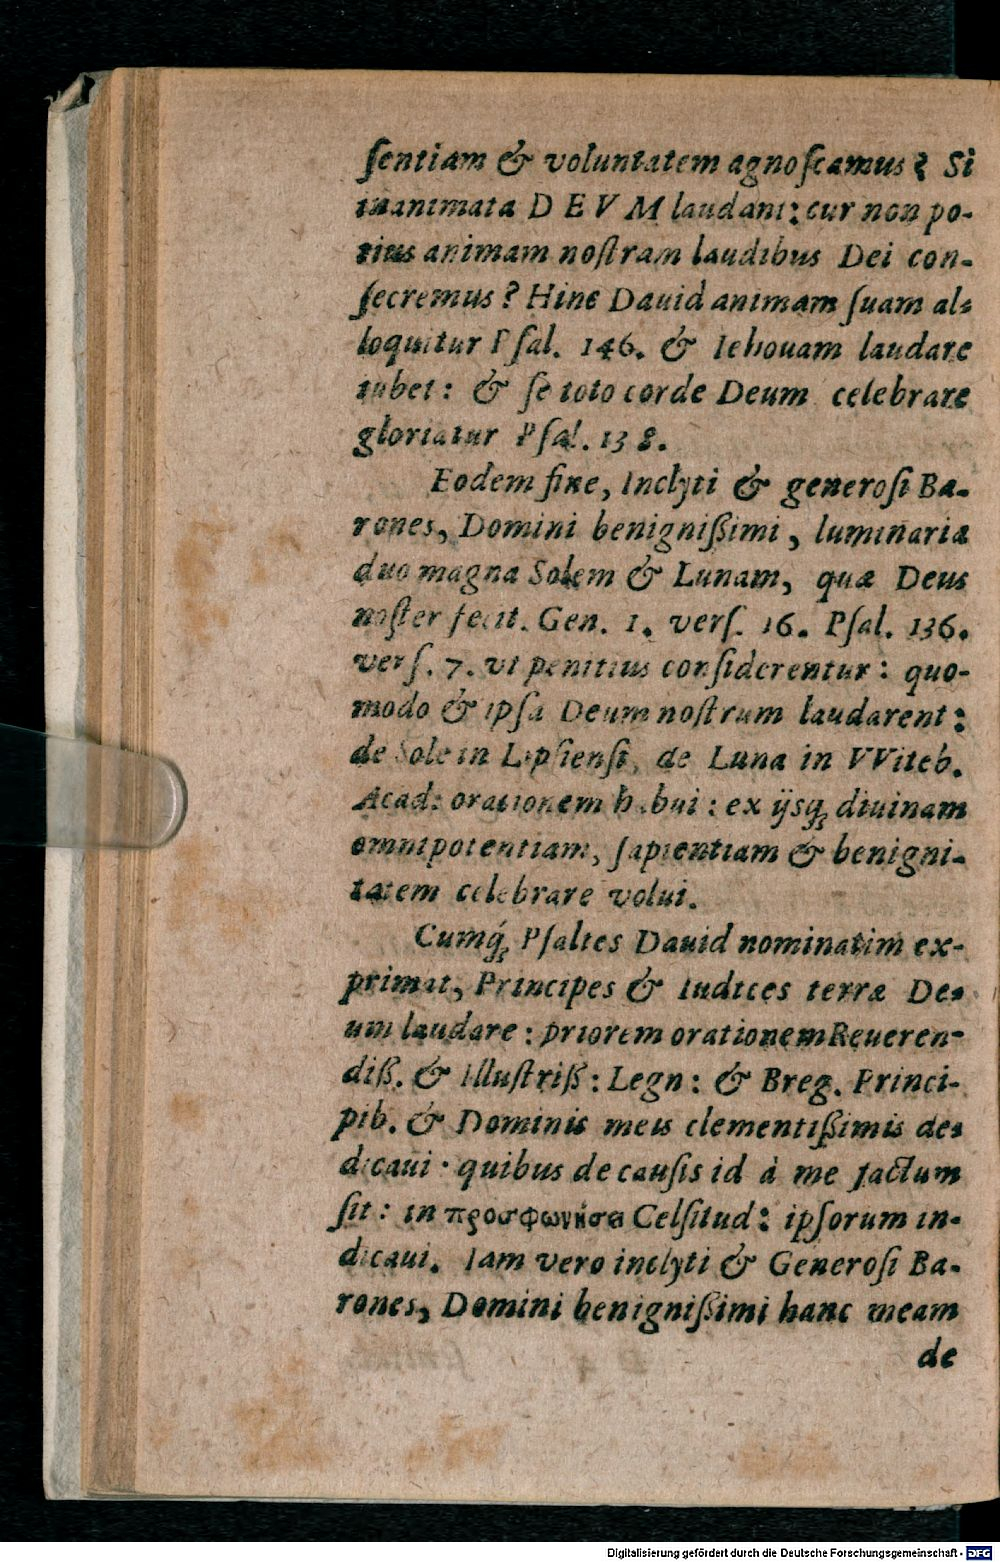 ſentiam & voluntatem agnoſcamus? Si
inanimata DEVM laudant: cur non po-
tius animam noſtram laudibus Dei con-
ſecremus? Hinc Dauid animam ſuam al-
loquitur Pſal. 146. & Iehouam laudare
iubet: & ſe toto corde Deum celebrare
gloriatur Pſal. 138.
Eodem fine, Inclyti & generoſi Ba-
rones, Domini benignißimi, luminaria
duo magna Solem & Lunam, quæ Deus
noſter fecit. Gen. 1. verſ. 16. Pſal. 136.
verſ. 7. vt penitius conſiderentur: quo-
modo & ipſa Deum noſtrum laudarent:
de Sole in Lipſienſi, de Luna in VViteb.
Acad: orationem habui: ex ijsq́ꝫ diuinam
omnipotentiam, ſapientiam & benigni-
tatem celebrare volui.
Cumq́ꝫ Pſaltes Dauid nominatim ex-
primat, Principes & Iudices terræ De-
um laudare: priorem orationem Reueren-
diß. & Illuſtriß: Legn: & Breg. Princi-
pib. & Dominis meis clementißimis de-
dicaui: quibus de cauſis id à me factum
ſit: in προσφωνήσει Celſitud: ipſorum in-
dicaui. Iam vero inclyti & Generoſi Ba-
rones, Domini benignißimi hanc meam
de
Digitalisierung gefördert durch die Deutsche Forschungsgemeinschaft - DFG